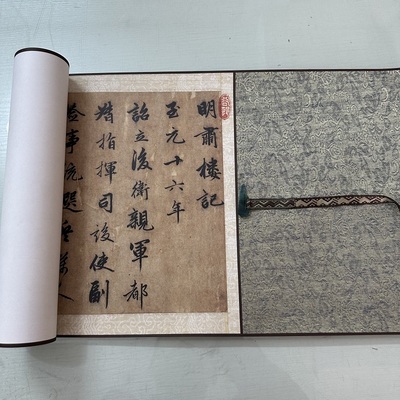 明肅樓記
至元十六年
詔立後衛親軍都
指揮司設使副
僉事統選兵萬人